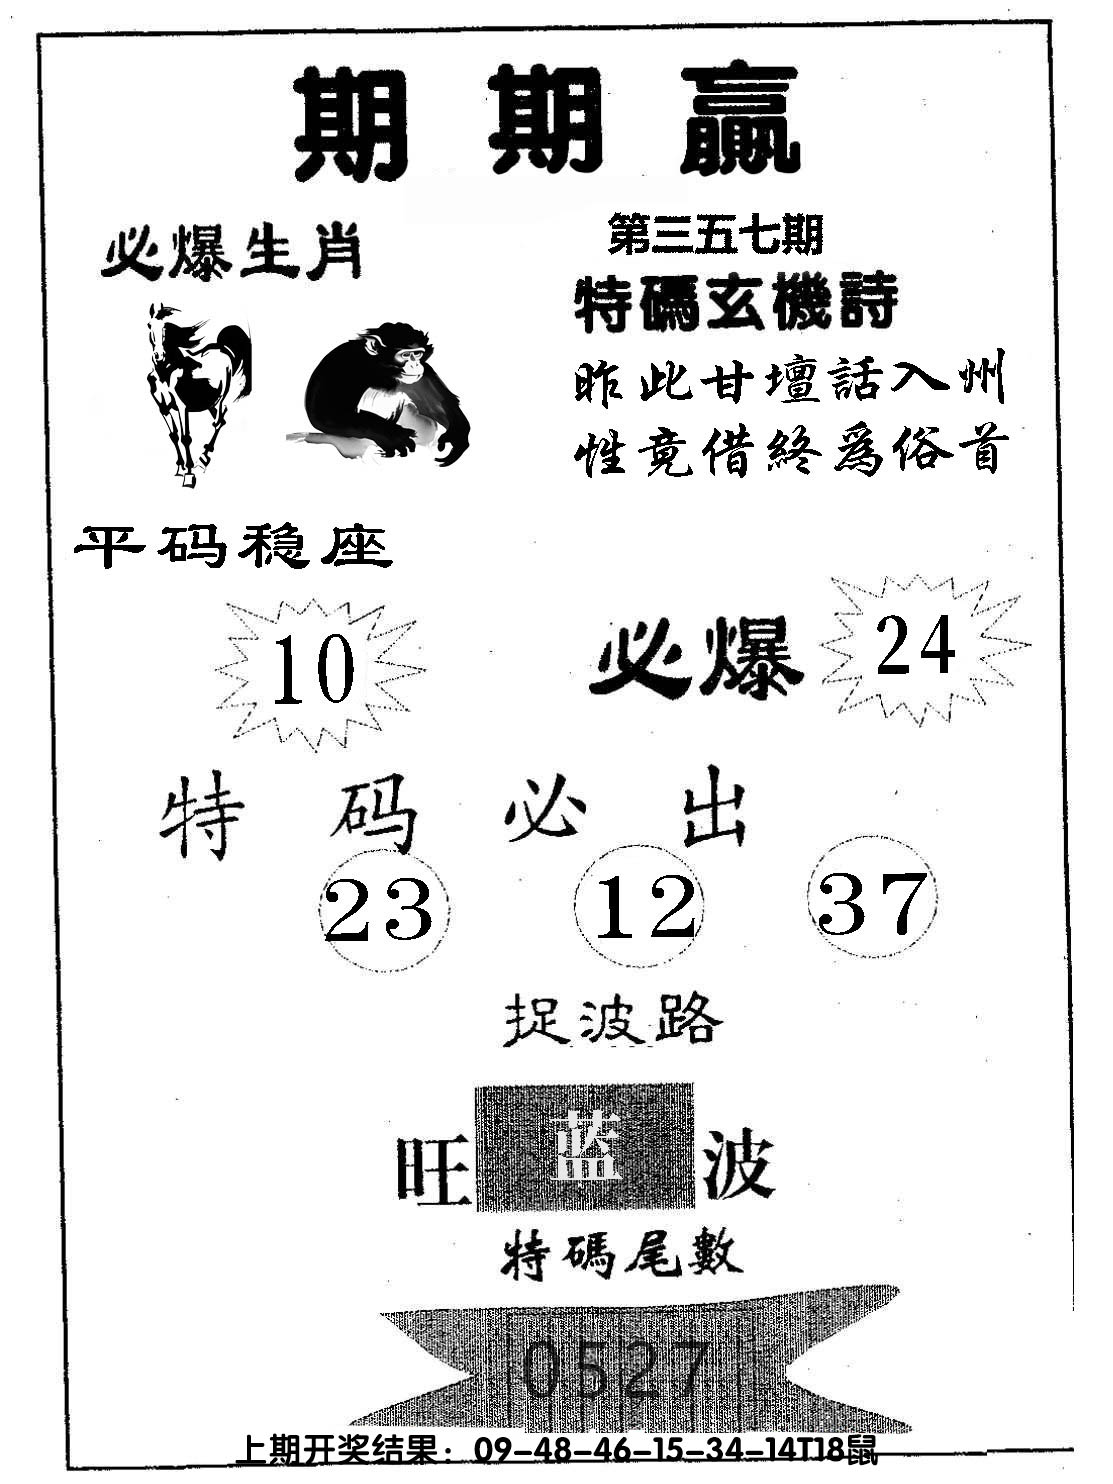 期期赢
第三五七期
必爆生肖
特碼玄機詩
昨此甘壇話入州
性竟借終為俗首
平码稳座
10
必爆 24
特码必出
23 12 37
捉波路
旺 蓝 波
特碼尾數
0527
上期开奖结果：09-48-46-15-34-14T18鼠